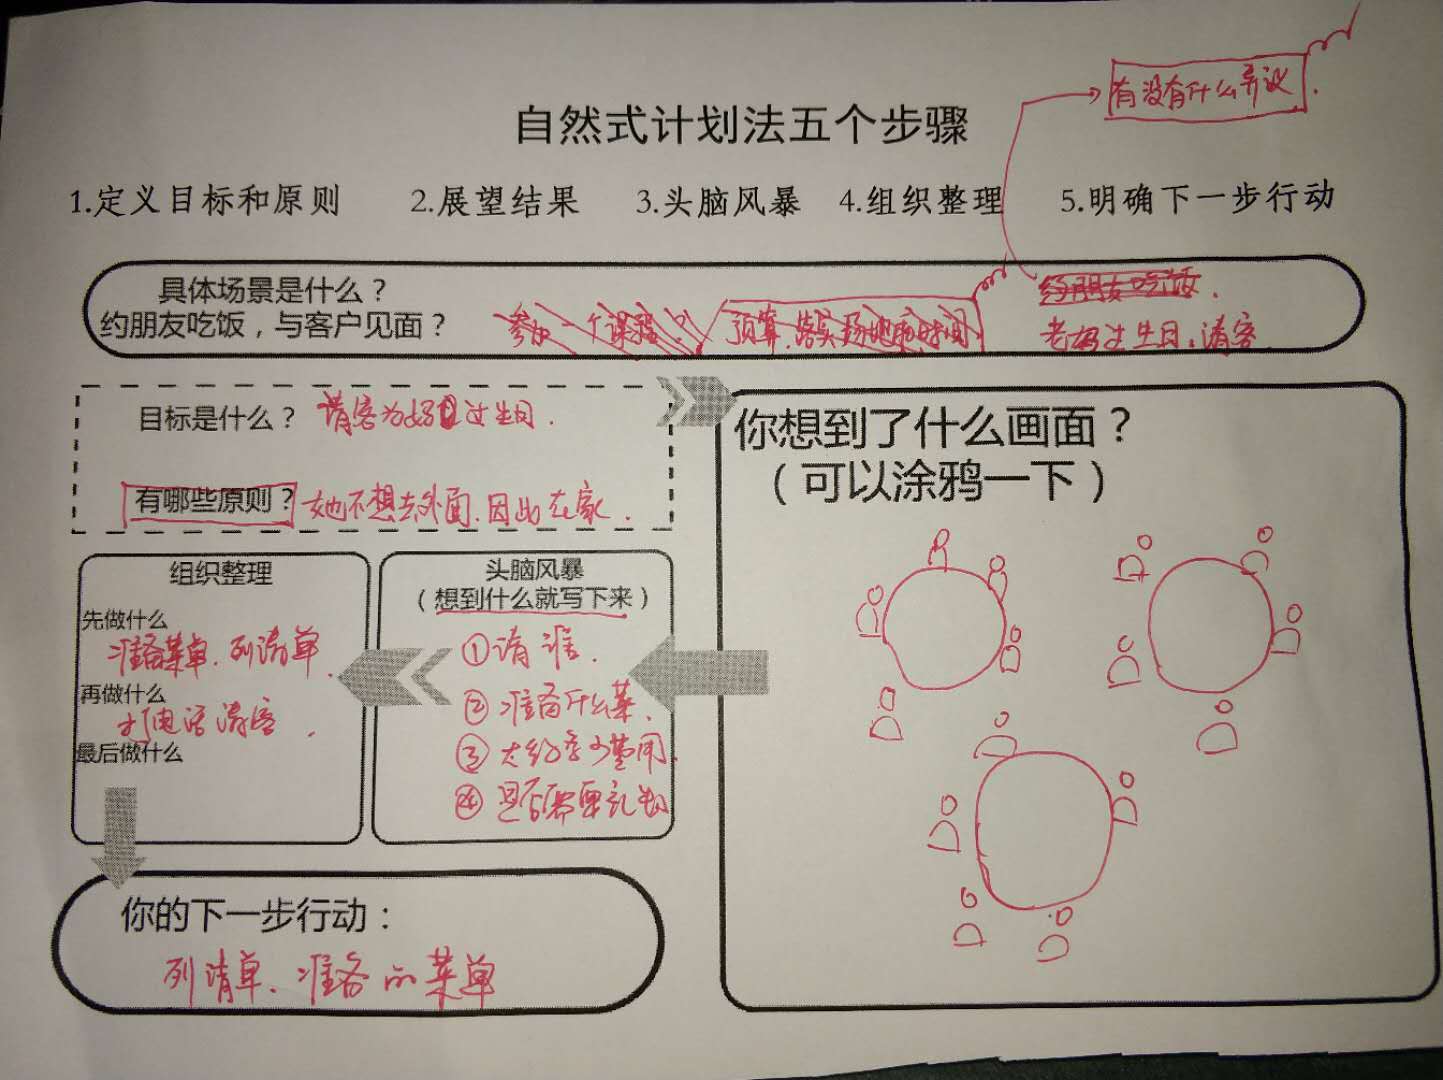 有没有什么异议.
自然式计划法五个步骤
1.定义目标和原则 2.展望结果 3.头脑风暴 4.组织整理 5.明确下一步行动
具体场景是什么？
约朋友吃饭，与客户见面？
参加一个课程？
预算、落实场地和时间
约朋友吃饭.
老妈过生日，请客
目标是什么？ 请客为妈过生日.
有哪些原则？ 她不想去外面，因此在家.
你想到了什么画面？
（可以涂鸦一下）
头脑风暴
（想到什么就写下来）
①请谁.
②准备什么菜.
③大约多少费用.
④是否需要礼物
组织整理
先做什么
准备菜单、列清单.
再做什么
打电话请客.
最后做什么
你的下一步行动：
列清单、准备的菜单